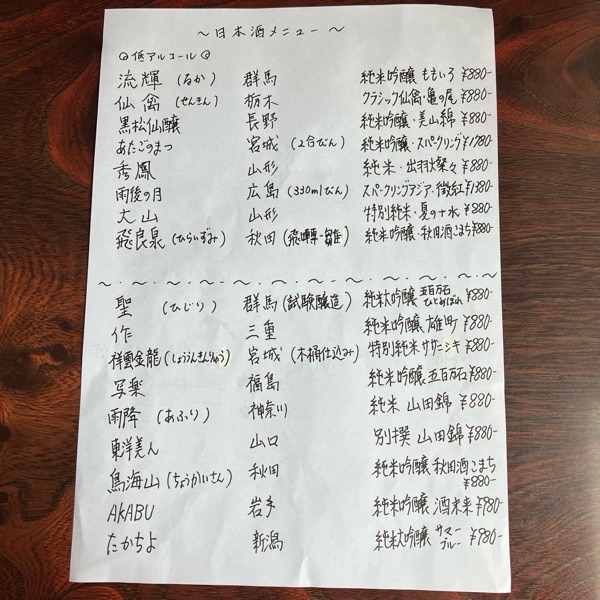 ～日本酒メニュー～
◎低アルコール◎
流輝 (るか) 群馬 純米吟醸 ももいろ ¥880-
仙禽 (せんきん) 栃木 クラシック仙禽・亀の尾 ¥880-
黒松仙醸 長野 純米吟醸・美山錦 ¥880-
あたごのまつ 宮城 (2合びん) 純米吟醸・スパークリング ¥1780-
秀鳳 山形 純米・出羽燦々 ¥880-
雨後の月 広島 (330mlびん) スパークリングアジア・微紅 ¥1380-
大山 山形 特別純米・夏の十水 ¥880-
飛良泉 (ひらいずみ) 秋田 (飛囀・雛) 純米吟醸・秋田酒こまち ¥880-
～・～・～・～・～・～・～・～・～・～・～・～
聖 (ひじり) 群馬 (試験醸造) 純米大吟醸 五百万石 ひとめぼれ ¥880-
作 三重 純米吟醸 雄町 ¥880-
祥雲金龍 (しょううんきんりゅう) 宮城 (木桶仕込み) 特別純米 ササニシキ ¥880-
写楽 福島 純米吟醸 五百万石 ¥880-
雨降 (あふり) 神奈川 純米 山田錦 ¥880-
東洋美人 山口 別撰 山田錦 ¥880-
鳥海山 (ちょうかいさん) 秋田 純米吟醸 秋田酒こまち
¥880-
AKABU 岩手 純米吟醸 酒未来 ¥980-
たかちよ 新潟 純米大吟醸 サマーブルー ¥980-